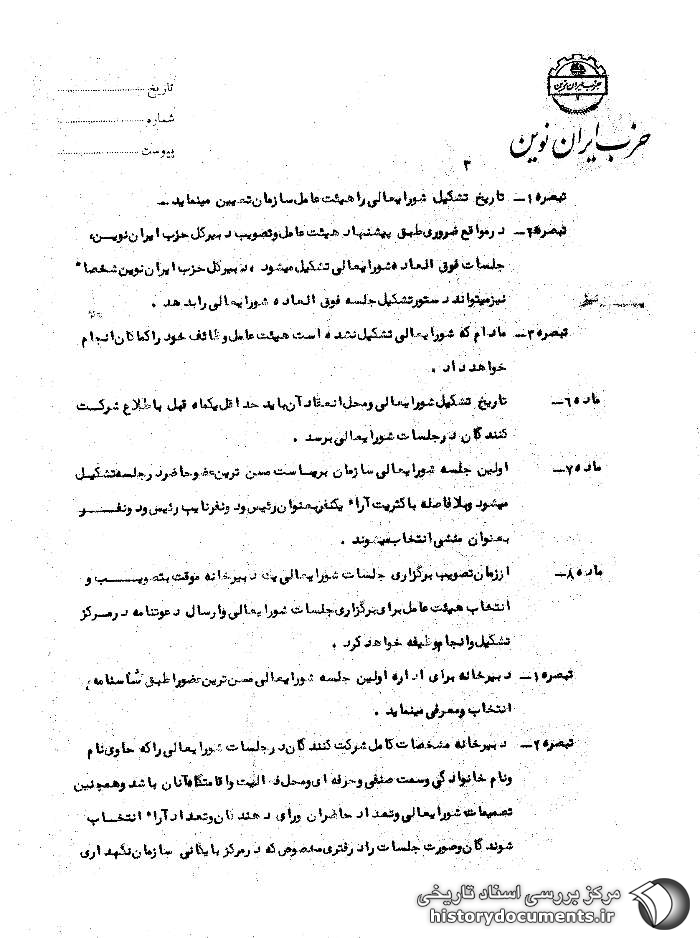 تاریخ
شماره
پیوست
حزب ایران نوین
حزب ایران نوین
۳
تبصره ۱ــ تاریخ تشکیل شورایعالی را هیئت عامل سازمان تعیین مینماید ــ
تبصره ۲ــ در مواقع ضروری طبق پیشنهاد هیئت عامل وتصویب دبیرکل حزب ایران نویــن ،
جلسات فوق العاده شورایعالی تشکیل میشود ، دبیرکل حزب ایران نوین شخصا"
نیز میتواند دستور تشکیل جلسه فوق العاده شورایعالی را بدهد .
تبصره ۳ــ مادام که شورایعالی تشکیل نشده است هیئت عامل وظائف خود را کماکان انجام
خواهد داد .
ماده ۶ــ تاریخ تشکیل شورایعالی ومحل انعقاد آن باید حداقل یکماه قبل باطلاع شرکت
کنندگان در جلسات شورایعالی برسد .
ماده ۷ــ اولین جلسه شورایعالی سازمان بریاست مسن ترین عضو حاضر در جلسه تشکیل
میشود وبلافاصله باکثریت آراء یکنفر بعنوان رئیس ودونفر نایب رئیس ودونفــــر
بعنوان منشی انتخاب میشوند .
ماده ۸ــ اززمان تصویب برگزاری جلسات شورایعالی یک دبیرخانه موقت بتصویــــب و
انتخاب هیئت عامل برای برگزاری جلسات شورایعالی وارسال دعوتنامه در مــرکز
تشکیل وانجام وظیفه خواهد کرد .
تبصره ۱ــ دبیرخانه برای اداره اولین جلسه شورایعالی مسن ترین عضو را طبق شناسنامه ،
انتخاب ومعرفی مینماید .
تبصره ۲ــ دبیرخانه مشخصات کامل شرکت کنندگان در جلسات شورایعالی را که حاوی نام
ونام خانوادگی وسمت صنفی وحرفه ای ومحل فعالیت واقامتگاه آنان باشد وهمچنین
تصمیمات شورایعالی وتعداد حاضران ورای دهندگان وتعداد آراء انتخــاب
شوندگان وصورت جلسات را در دفتری مخصوص که در مرکز بایگانی سازمان نگهداری
مرکز بررسی اسناد تاریخی
historydocuments.ir